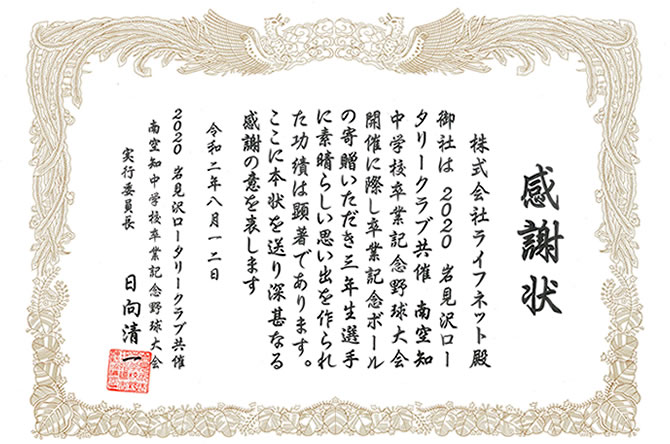 感謝状
株式会社ライフネット殿
御社は2020岩見沢ロー
タリークラブ共催 南空知
中学校卒業記念野球大会
開催に際し卒業記念ボール
の寄贈いただき三年生選手
に素晴らしい思い出を作られ
た功績は顕著であります。
ここに本状を送り深甚なる
感謝の意を表します
令和二年八月一二日
2020 岩見沢ロータリークラブ共催
南空知中学校卒業記念野球大会
実行委員長 日向清一